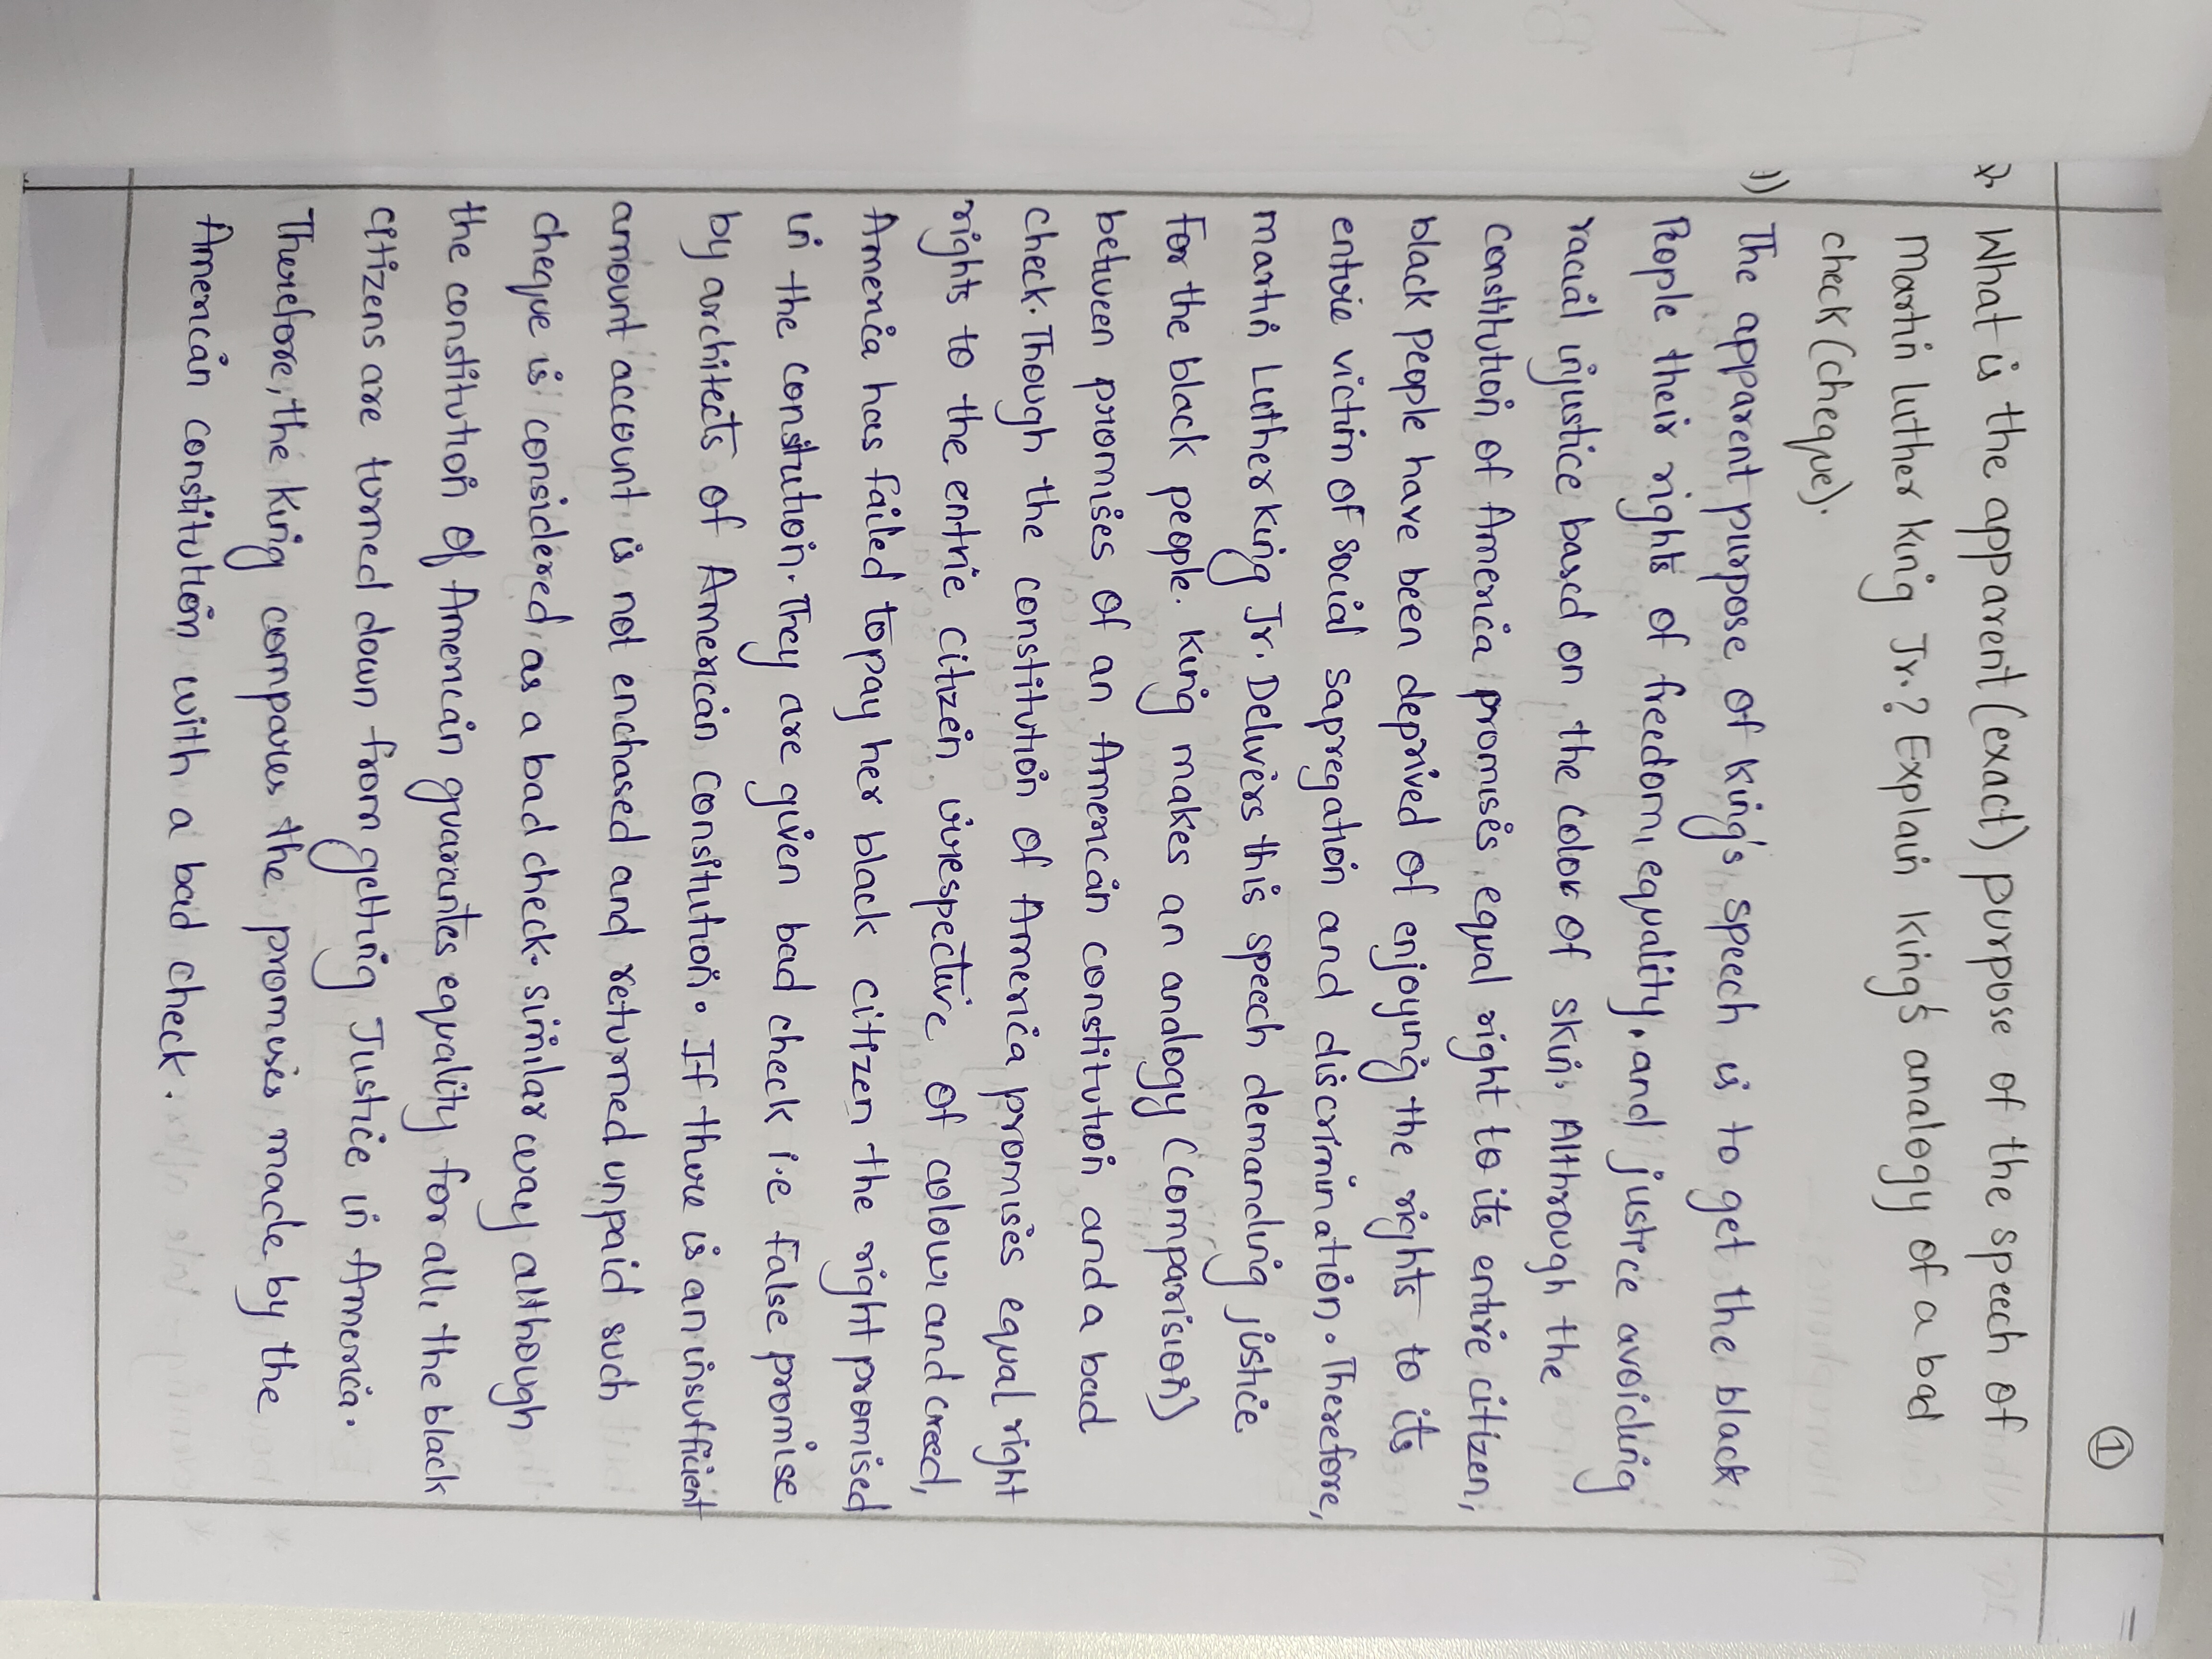 ①
Q. What is the apparent (exact) purpose of the speech of
Martin luther King Jr.? Explain King's analogy of a bad
check (cheque).
1) The apparent purpose of king's speech is to get the black
People their rights of freedom, equality, and justice avoiding
racial injustice based on the color of skin. Althrough the
constitution of America promises equal right to its entire citizen,
black people have been deprived of enjoying the rights to its
entrie victim of social sapregation and discrimination. Therefore,
martin Luther king Jr. Delivers this speech demanding justice
For the black people. King makes an analogy (comparision)
between promises of an American constitution and a bad
check. Though the constitution of America promises equal right
rights to the entrie citizen irrespective of colour and creed,
America has failed to pay her black citizen the right promised
in the constitution. They are given bad check i.e false promise
by architects of American constitution. If there is an insufficient
amount account is not enchased and returned unpaid such
cheque is considered as a bad check. similar way although
the constitution of American guarantes equality for all, the black
citizens are turned down from getting Justice in America.
Therefore, the King compares the promises made by the
American constitution with a bad check.